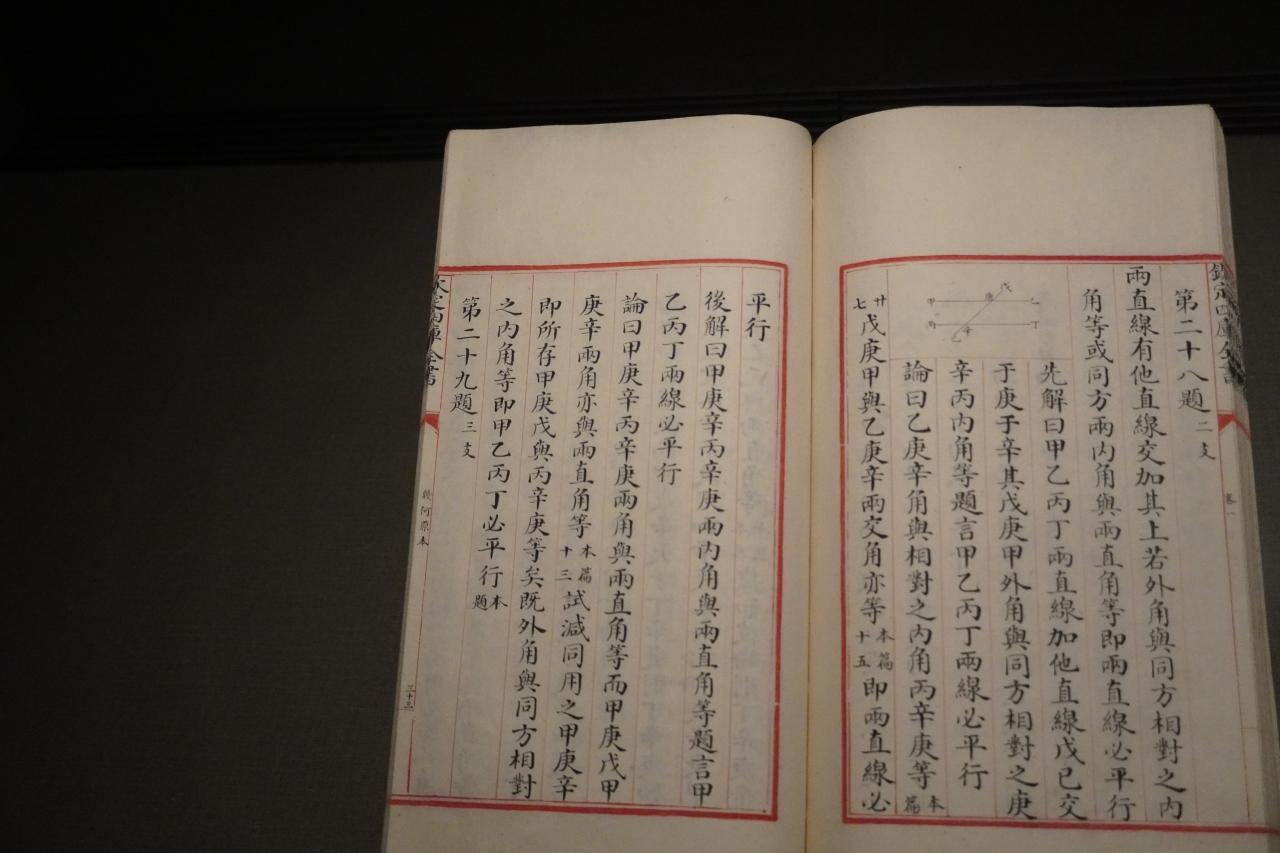 欽定四庫全書
卷一
第二十八題二支
兩直線有他直線交加其上若外角與同方相對之內
角等或同方兩內角與兩直角等即兩直線必平行
先解曰甲乙丙丁兩直線加他直線戊己交
于庚于辛其戊庚甲外角與同方相對之庚
辛丙內角等題言甲乙丙丁兩線必平行
論曰乙庚辛角與相對之內角丙辛庚等本篇
廿七戊庚甲與乙庚辛兩交角亦等本篇十五即兩直線必
甲 乙 丙 丁 戊 庚 辛 己
平行
後解曰甲庚辛丙辛庚兩內角與兩直角等題言甲
乙丙丁兩線必平行
論曰甲庚辛丙辛庚兩角與兩直角等而甲庚戊甲
庚辛兩角亦與兩直角等本篇十三試減同用之甲庚辛
即所存甲庚戊與丙辛庚等矣既外角與同方相對
之內角等即甲乙丙丁必平行本題
第二十九題三支
欽定四庫全書
幾何原本
三十三